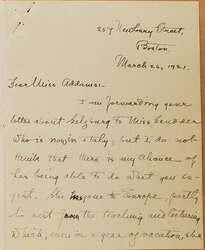 257 Newbury Street,
Boston.
March 26, 1921.
Dear Miss Addams:
I am forwarding your
letter about Salzburg to Miss Scudder
who is now in Italy, but I do not
think that there is any chance of
her being able to do what you
She  to Europe, partly
to rest from the teaching and lecturing
which, even in a year of vacation, she